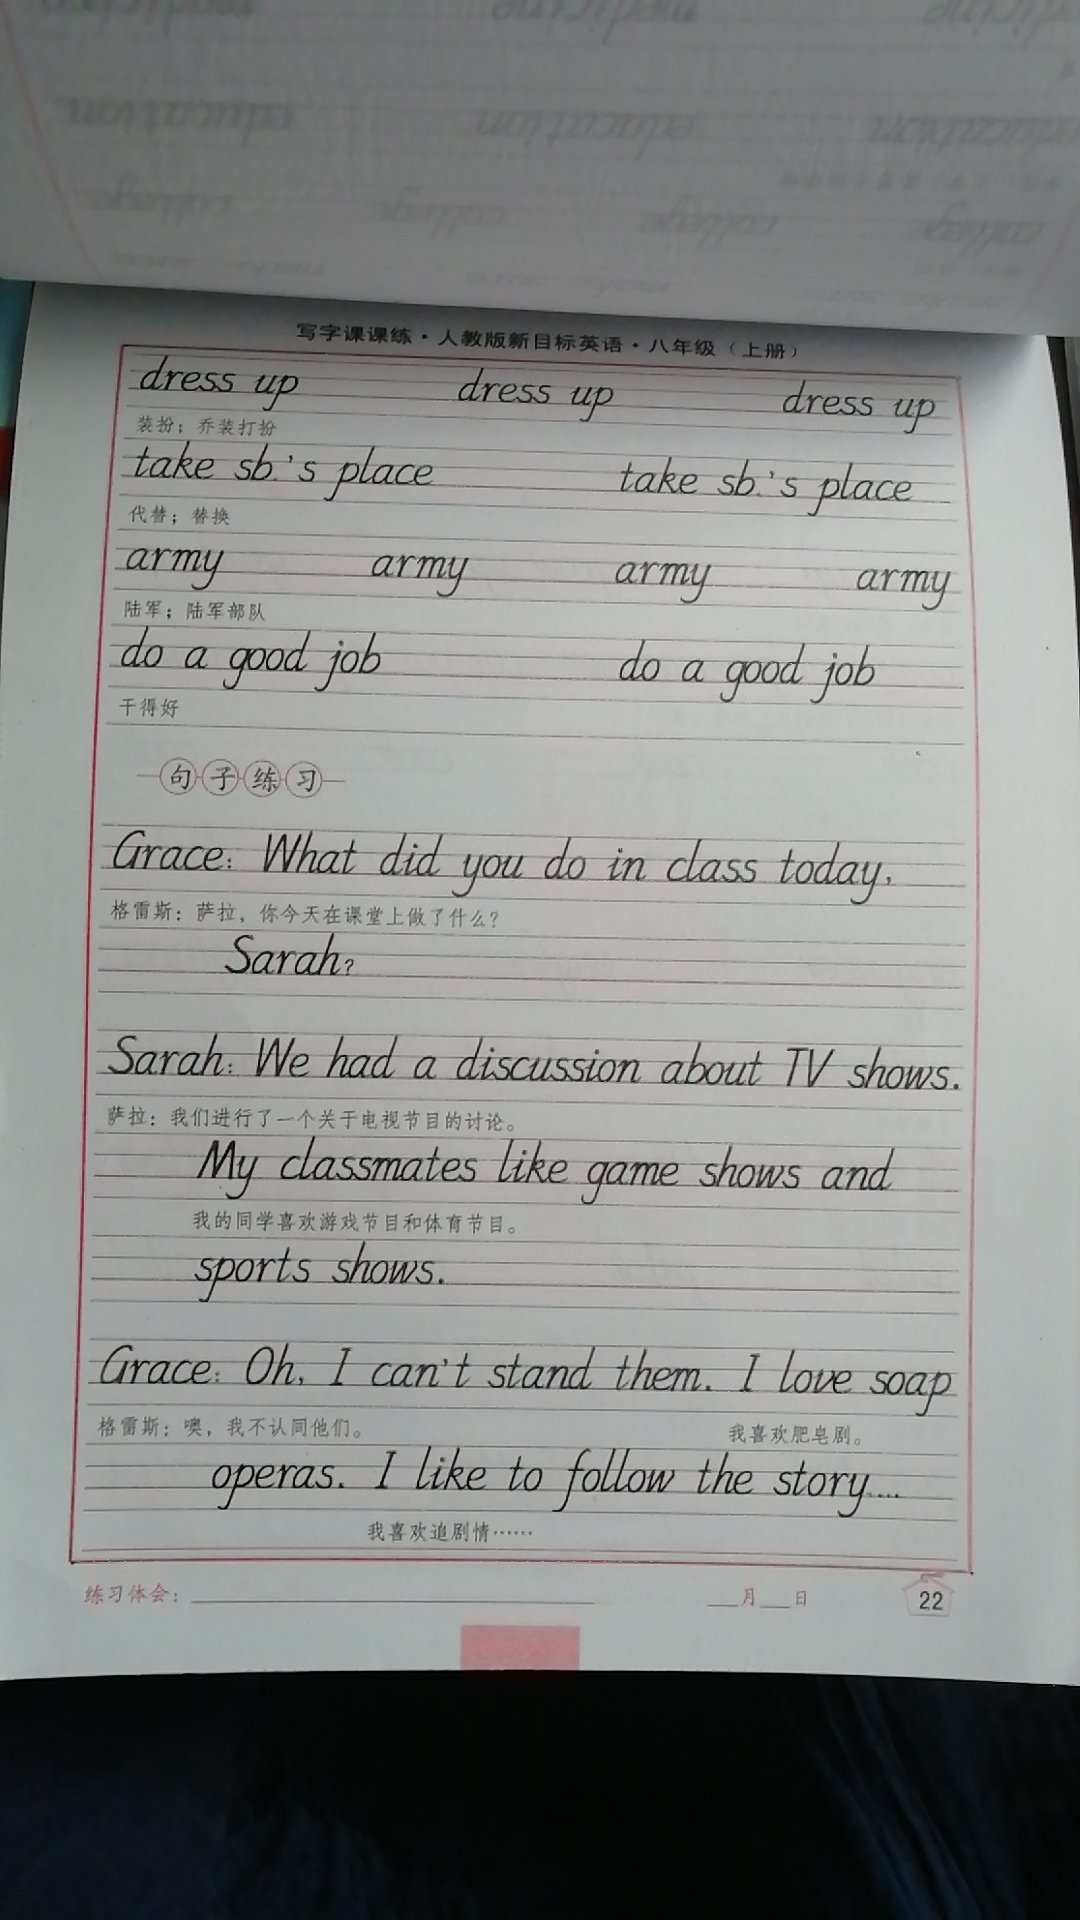 写字课课练·人教版新目标英语·八年级（上册）
dress up dress up dress up
装扮；乔装打扮
take sb.'s place take sb.'s place
代替；替换
army army army army
陆军；陆军部队
do a good job do a good job
干得好
句子练习
Grace: What did you do in class today,
格雷斯：萨拉，你今天在课堂上做了什么？
Sarah?
Sarah: We had a discussion about TV shows.
萨拉：我们进行了一个关于电视节目的讨论。
My classmates like game shows and
我的同学喜欢游戏节目和体育节目。
sports shows.
Grace: Oh, I can't stand them. I love soap
格雷斯：噢，我不认同他们。 我喜欢肥皂剧。
operas. I like to follow the story....
我喜欢追剧情……
练习体会：
月 日
22